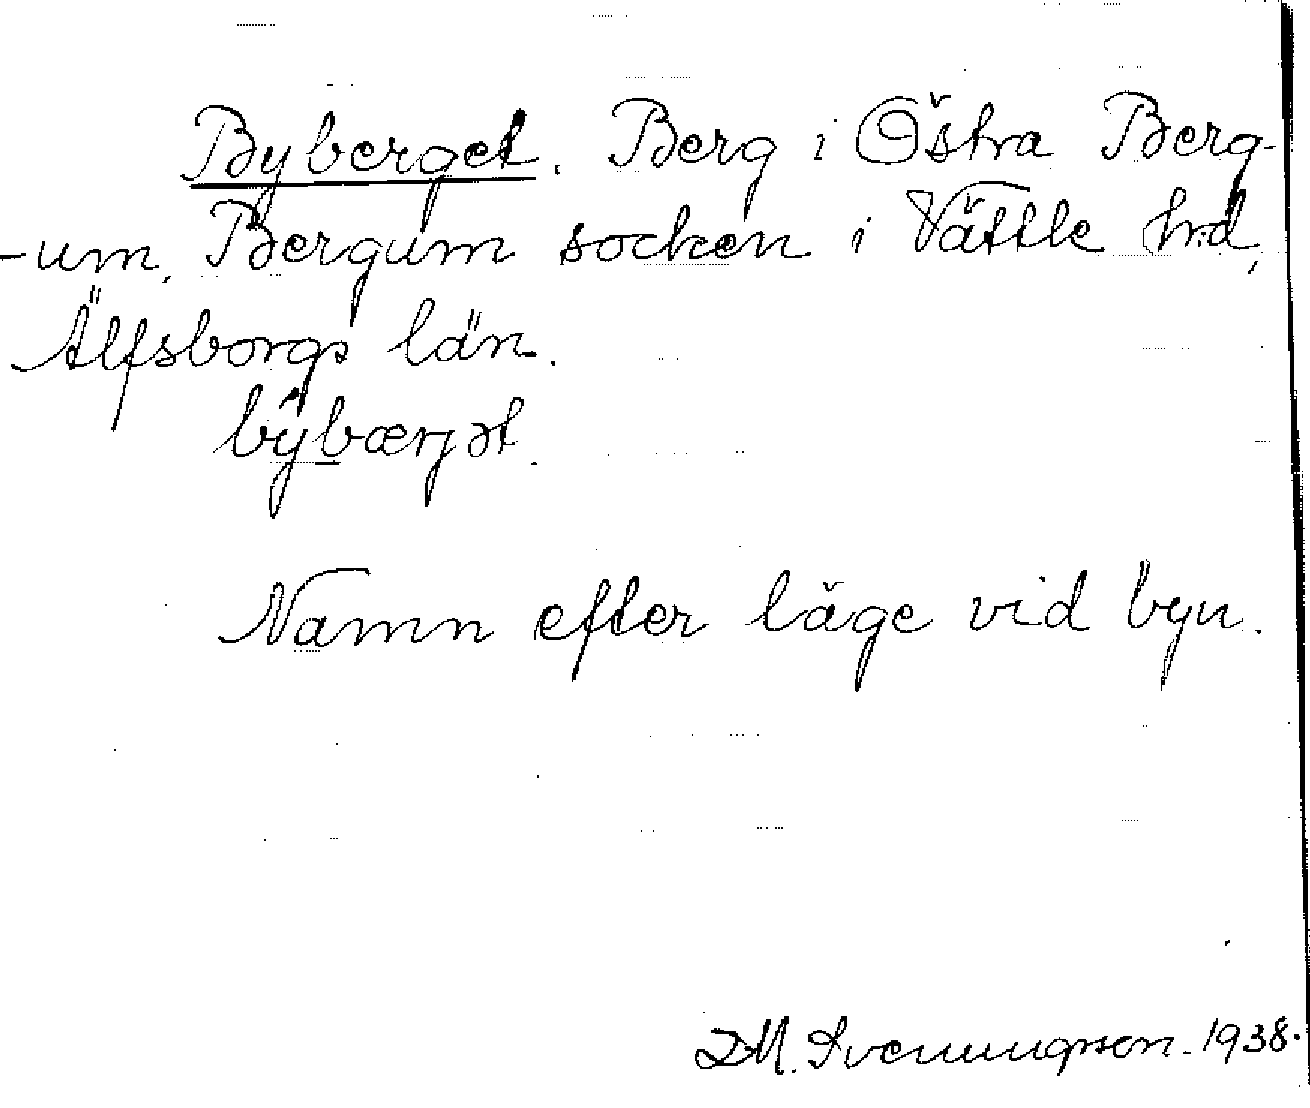 Byberget. Berg i Östra Berg-
-um, Bergum socken i Vättle hrd,
Älfsborgs län.
bŷbærjət.
Namn efter läge vid byn.
D.M. Svenungsson. 1938.